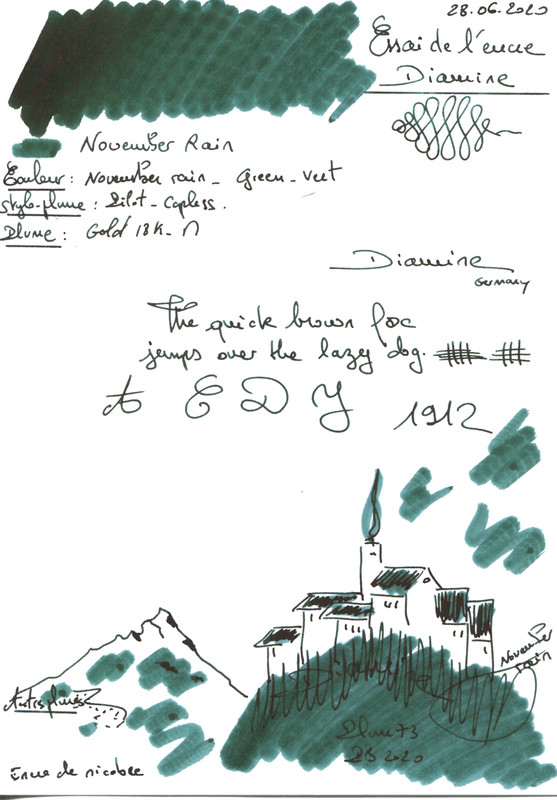 28.06.2020
Essai de l'encre
Diamine
November Rain
Couleur : November rain - Green - Vert
stylo-plume : Pilot - Capless.
Plume : Gold 18K - M
Diamine
Germany
The quick brown fox
jumps over the lazy dog.
A E D Y 1912
November
rain
Diamine
Plum73
2020
Encre de